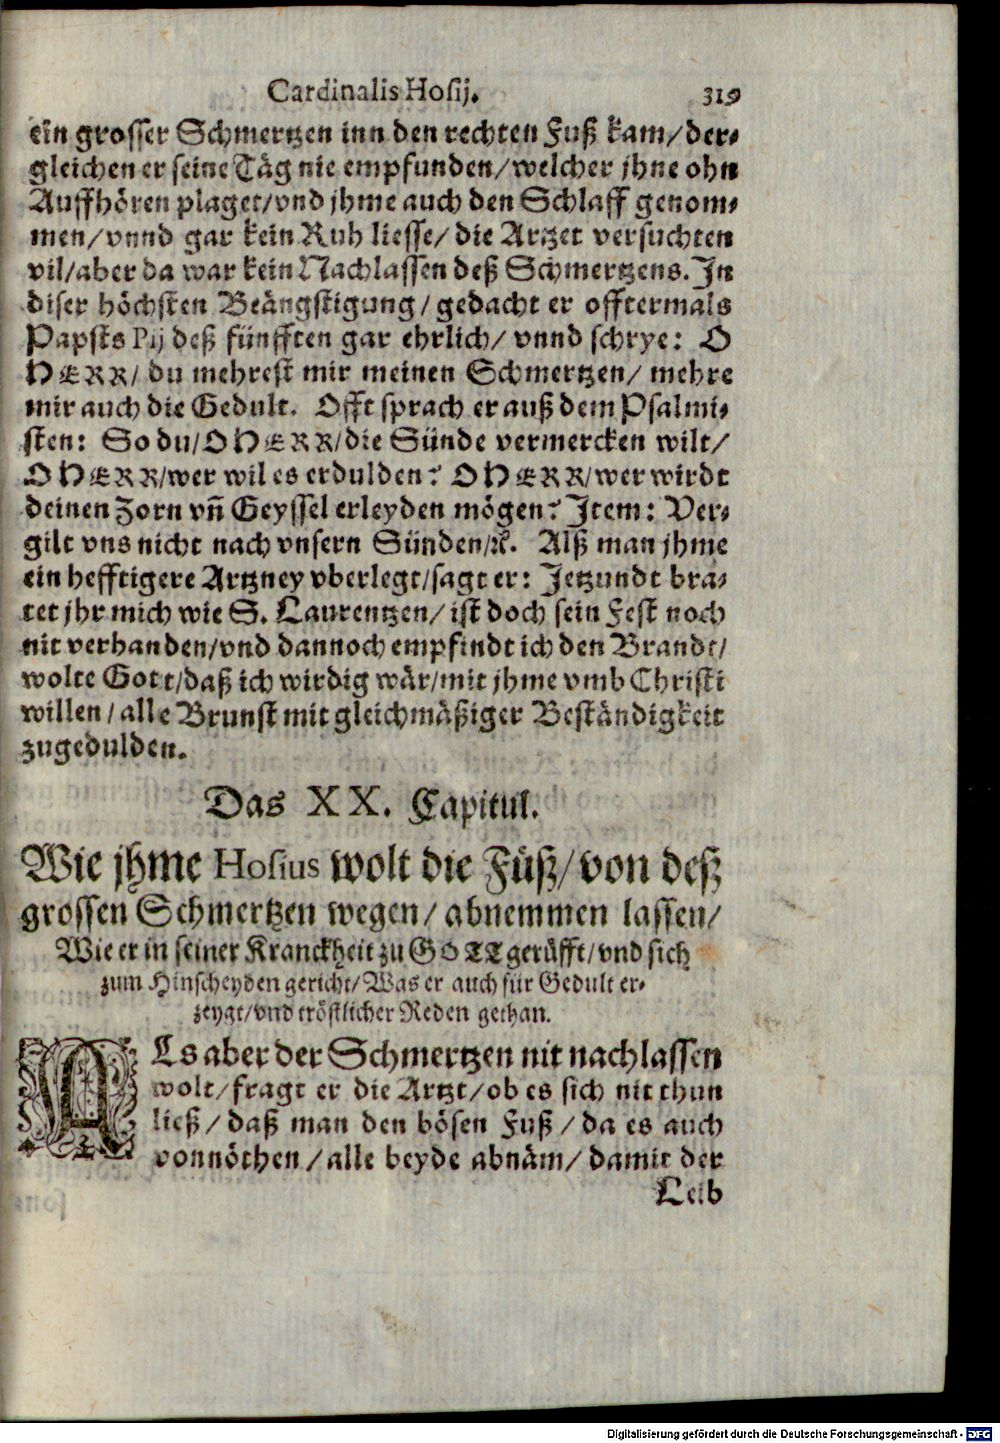 Cardinalis Hosij. 319
ein grosser Schmertzen inn den rechten Fuß kam/der-
gleichen er seine Täg nie empfunden/welcher jhne ohn
Auffhören plaget/vnd jhme auch den Schlaff genom-
men/vnnd gar kein Ruh liesse/die Artzet versuchten
vil/aber da war kein Nachlassen deß Schmertzens. In
diser höchsten Beängstigung/gedacht er offtermals
Papsts Pij deß fünfften gar ehrlich/vnnd schrye: O
HERR/du mehrest mir meinen Schmertzen/mehre
mir auch die Gedult. Offt sprach er auß dem Psalmi-
sten: So du/O HERR/die Sünde vermercken wilt/
O HERR/wer wil es erdulden? O HERR/wer wirdt
deinen Zorn vñ Geyssel erleyden mögen? Item: Ver-
gilt vns nicht nach vnsern Sünden/ꝛc. Alß man jhme
ein hefftigere Artzney vberlegt/sagt er: Jetzundt bra-
tet jhr mich wie S. Laurentzen/ist doch sein Fest noch
nit verhanden/vnd dannoch empfindt ich den Brandt/
wolte Gott/daß ich wirdig wär/mit jhme vmb Christi
willen/alle Brunst mit gleichmäßiger Beständigkeit
zugedulden.
Das XX. Capitul.
Wie jhme Hosius wolt die Füß/von deß
grossen Schmertzen wegen/abnemmen lassen/
Wie er in seiner Kranckheit zu GOTT gerüfft/vnd sich
zum Hinscheyden gericht/Was er auch für Gedult er-
zeygt/vnd tröstlicher Reden gethan.
ALs aber der Schmertzen nit nachlassen
wolt/fragt er die Artzt/ob es sich nit thun
ließ/daß man den bösen Fuß/da es auch
vonnöthen/alle beyde abnäm/damit der
Leib
Digitalisierung gefördert durch die Deutsche Forschungsgemeinschaft - DFG